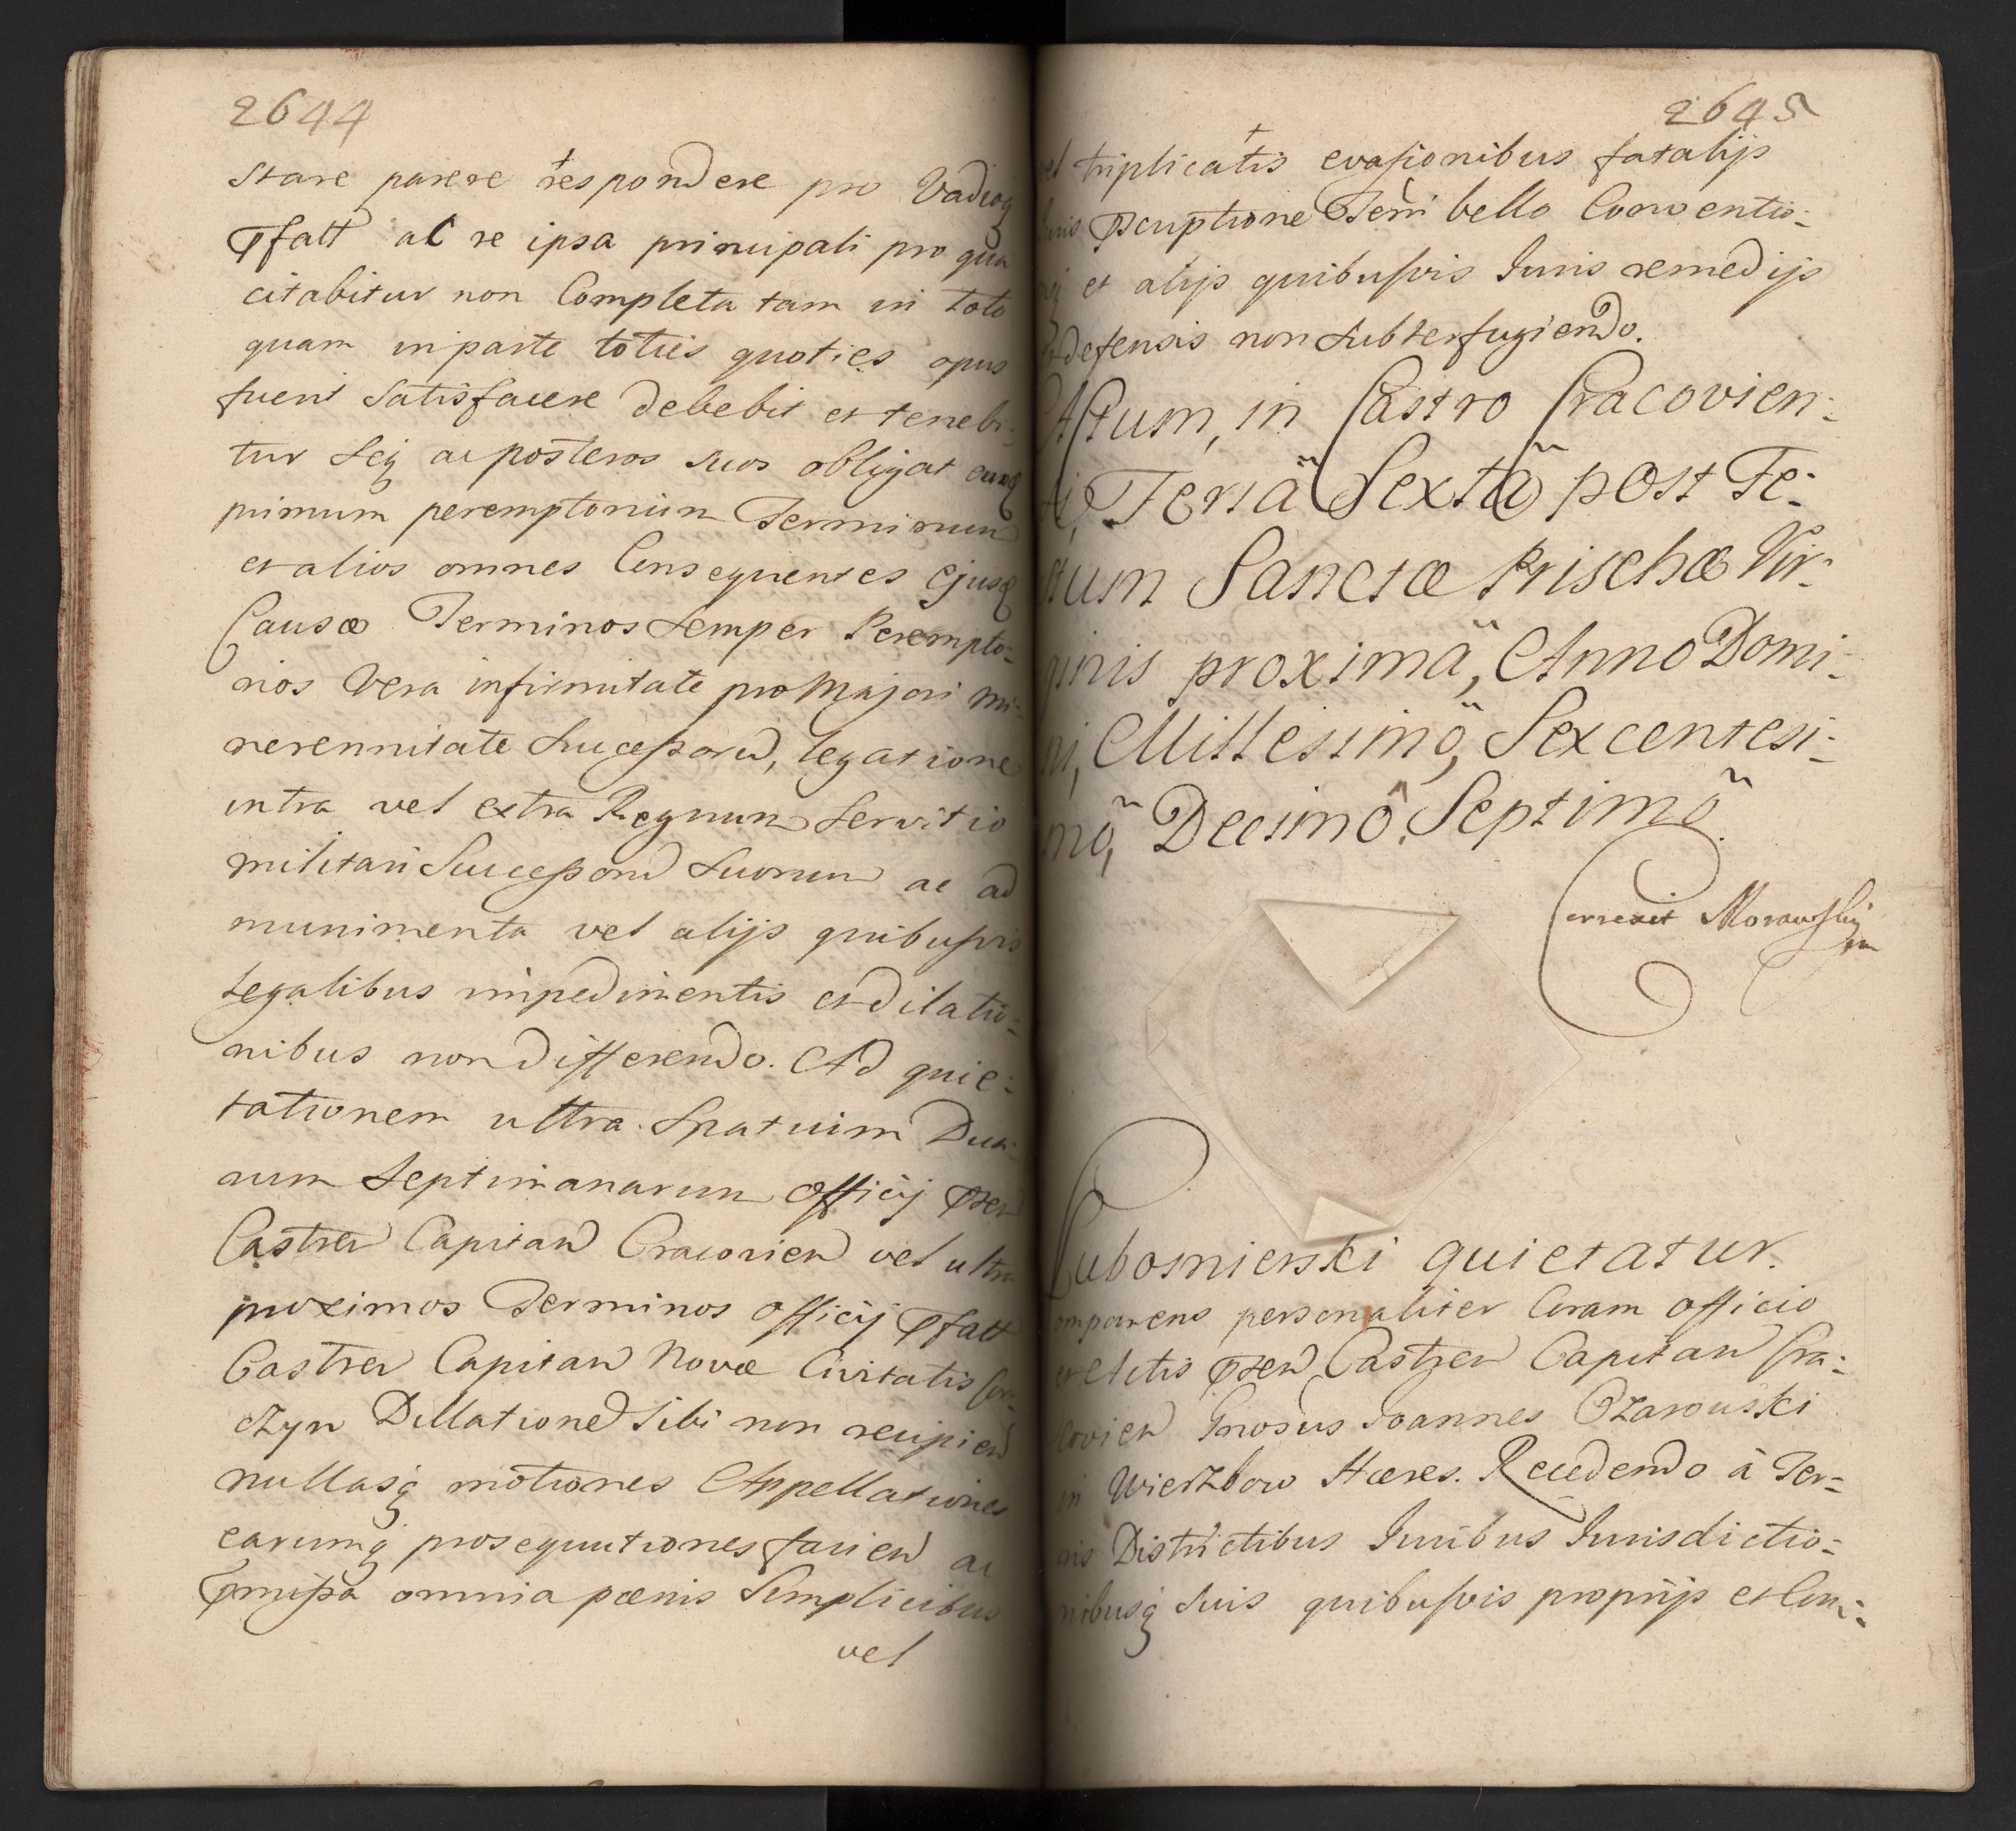 2644
Stare parere respondere pro Vadioq
Pfatt ac re ipsa principali pro qua
citabitur non Completa tam in toto
quam in parte toties quoties opus
fuerit Satisfacere debebit et tenebi-
tur seq ac posteros suos obligat eumq
primum peremptorium Terminum
et alios omnes Consequentes ejusq
Causæ Terminos semper Perempto-
rios Vera infirmitate pro Majori mi-
norennitate Successorum, legatione
intra vel extra Regnum servitio
militari Successorum suorum ac ad
munimenta vel alijs quibusvis
legalibus impedimentis et dilatio-
nibus non differendo. Ad quie:
tationem ultra Spatium Dua-
rum Septimanarum Officij Pren
Castren Capitan Cracovien vel ultra
proximos Terminos Officij Pfatt
Castren Capitan Novæ Civitatis Cor-
czyn Dillatione Sibi non recipien
nullasq motiones Appellationes
earumq prosequutiones facien ac
Pmissa omnia pænis Simplicibus
vel
2645
vel triplicatis evasionibus fatalijs
Juris Pscriptione Terri bello Conventio-
et alijs quibusvis Juris remedijs
et defensis non subterfugiendo.
Actum, in Castro Cracovien-
si, Feriâ Sextâ post Fe-
stum Sanctæ Prischæ Vir-
ginis proximâ, Anno Domi-
ni, Millesimô, Sexcentesi-
mô, Decimô, Septimô.
Correxit Morawskij
mp
Lubosnierski quietatur.
Comparens personaliter Coram Officio
et Actis Pren Castren Capitan Cra-
covien Gnosus Joannes Ozarowski
in Wierzbow Hæres. Recedendo à Ter-
ris Districtibus Juribus Jurisdictio-
nibusq suis quibusvis proprijs et Com-